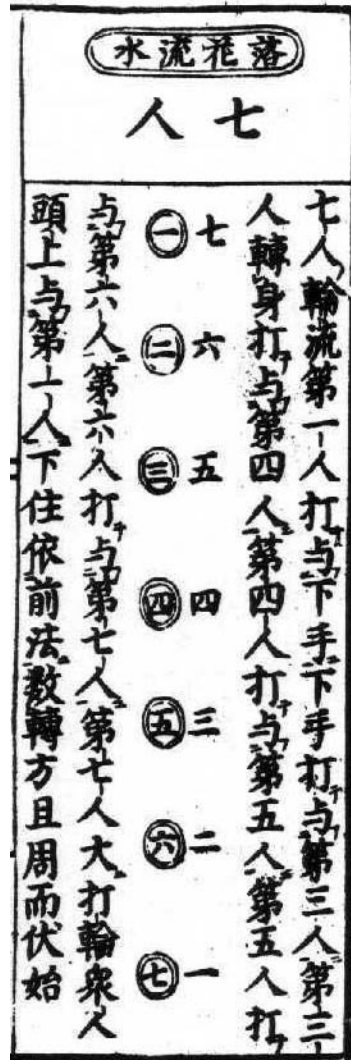 落花流水
七人
七人輪流第一人打与下手下手打与第三人第三
人轉身打与第四人第四人打与第五人第五人打
七 六 五 四 三 二 一
一 二 三 四 五 六 七
与第六人第六人打与第七人第七人大打輪衆人
頭上与第一人下住依前法数轉方且周而伏始